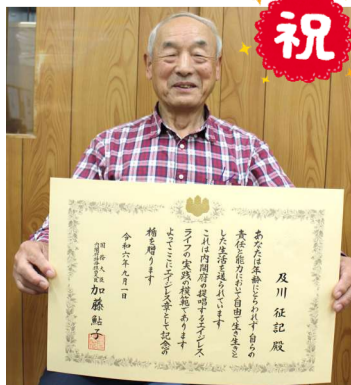 祝
及川 征記 殿
あなたは年齢にとらわれず 自らの
責任と能力において自由で生き生きと
した生活を送られています
これは内閣府の提唱するエイジレス・
ライフの実践の模範であります
よってここにエイジレス章として記念の
楯を贈ります
令和六年九月一日
国務大臣
加藤鮎子